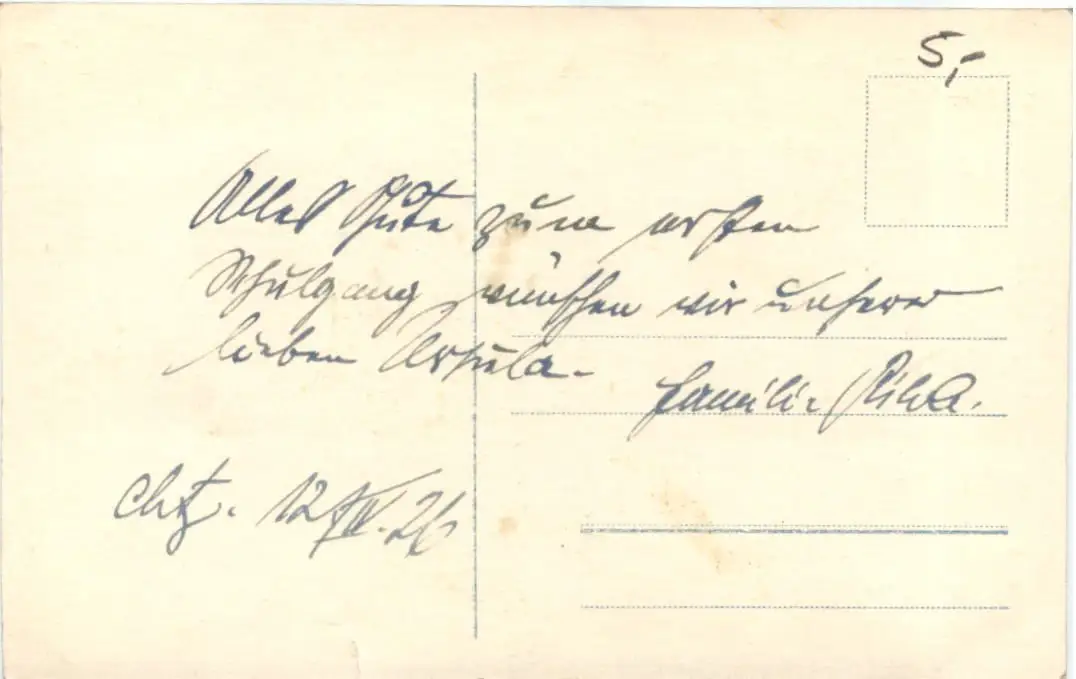 5,-
Alles Gute zum ersten
Schulgang wünschen wir unserer
lieben Ursula.
Familie
Chtz. 12/IV. 26